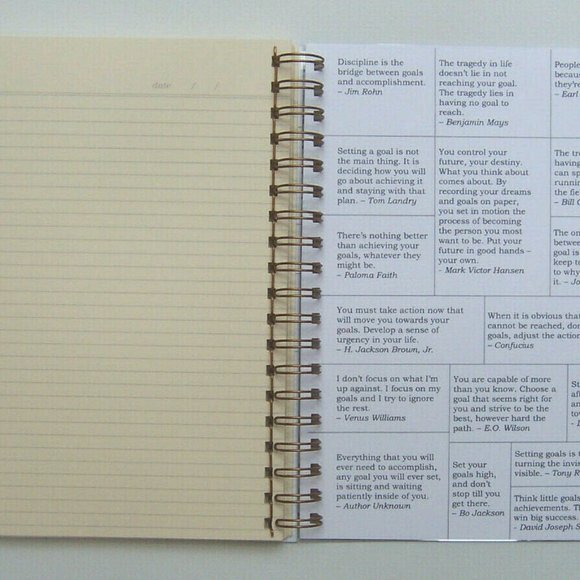 date / /
Discipline is the
bridge between goals
and accomplishment.
– Jim Rohn
The tragedy in life
doesn't lie in not
reaching your goal.
The tragedy lies in
having no goal to
reach.
– Benjamin Mays
People
becaus
they're
– Earl
Setting a goal is not
the main thing. It is
deciding how you will
go about achieving it
and staying with that
plan. – Tom Landry
You control your
future, your destiny.
What you think about
comes about. By
recording your dreams
and goals on paper,
you set in motion the
process of becoming
the person you most
want to be. Put your
future in good hands –
your own.
- Mark Victor Hansen
The tro
having
can sp
running
the fie
- Bill C
There's nothing better
than achieving your
goals, whatever they
might be.
– Paloma Faith
The on
between
goal is
keep to
to why
it. – Jo
You must take action now that
will move you towards your
goals. Develop a sense of
urgency in your life.
– H. Jackson Brown, Jr.
When it is obvious that
cannot be reached, don
goals, adjust the action
– Confucius
I don't focus on what I'm
up against. I focus on my
goals and I try to ignore
the rest.
– Venus Williams
You are capable of more
than you know. Choose a
goal that seems right for
you and strive to be the
best, however hard the
path. – E.O. Wilson
St
aft
and
tow
Everything that you will
ever need to accomplish,
any goal you will ever set,
is sitting and waiting
patiently inside of you.
– Author Unknown
Set your
goals high,
and don't
stop till you
get there.
– Bo Jackson
Setting goals is t
turning the invis
visible. – Tony R
Think little goals
achievements. Th
win big success.
- David Joseph S